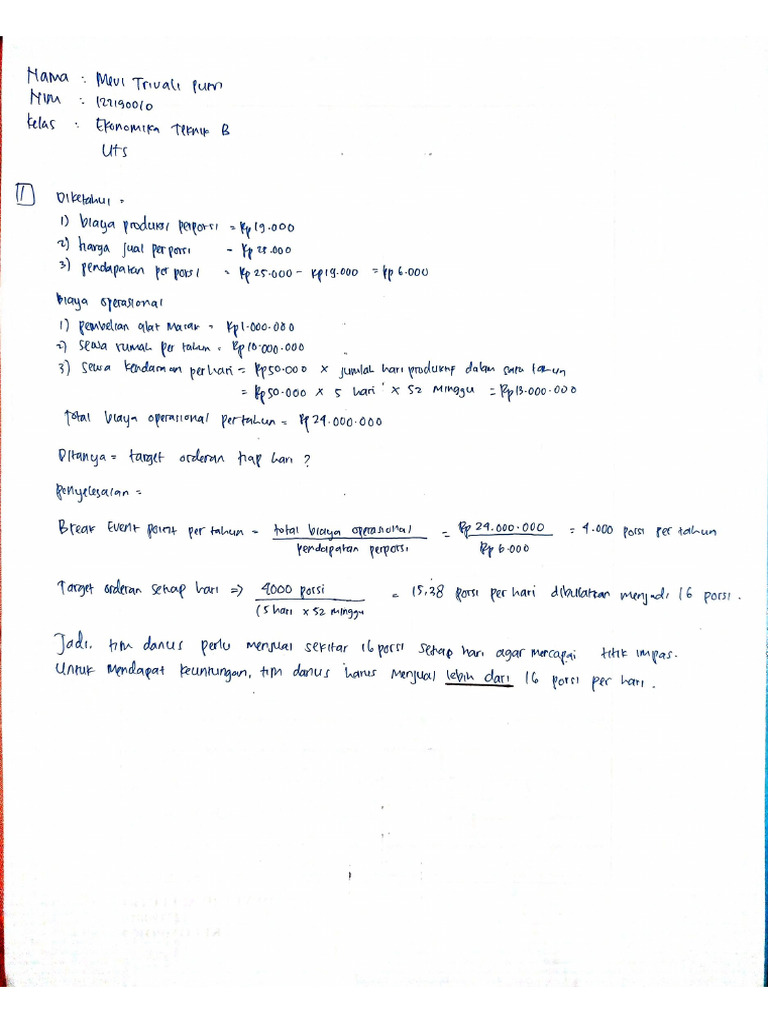 Nama : Mevi Trivali Putri
NIM : 122190010
Kelas : Ekonomika Teknik B
UTS
1 Diketahui =
1) biaya produksi perporsi = Rp 19.000
2) harga jual per porsi = Rp 25.000
3) pendapatan per porsi = Rp 25.000 - Rp 19.000 = Rp 6.000
biaya operasional
1) pembelian alat masak = Rp 1.000.000
2) sewa rumah per tahun = Rp 10.000.000
3) sewa kendaraan per hari = Rp 50.000 x jumlah hari produktif dalam satu tahun
= Rp 50.000 x 5 hari x 52 minggu = Rp 13.000.000
Total biaya operasional per tahun = Rp 24.000.000
Ditanya = target orderan tiap hari ?
Penyelesaian =
Break Event point per tahun = total biaya operasional / pendapatan perporsi = Rp 24.000.000 / Rp 6.000 = 4.000 porsi per tahun
Target orderan setiap hari => 4000 porsi / (5 hari x 52 minggu = 15,38 porsi per hari dibulatkan menjadi 16 porsi.
Jadi, tim danus perlu menjual sekitar 16 porsi setiap hari agar mencapai titik impas.
Untuk mendapat keuntungan, tim danus harus menjual lebih dari 16 porsi per hari.